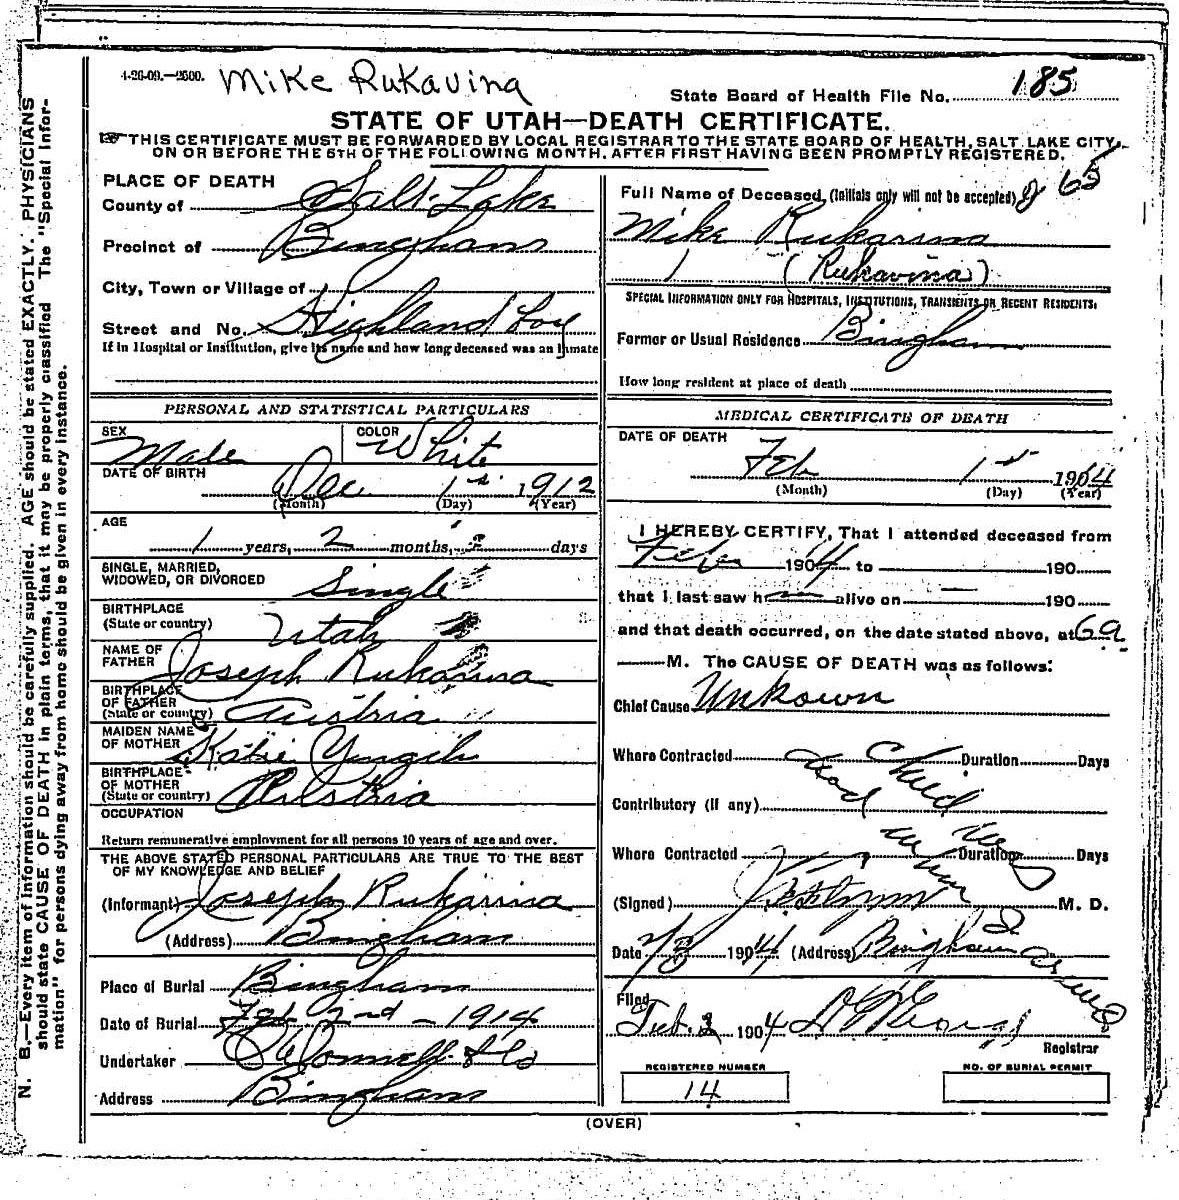 4-26-09.—2500.
Mike Rukavina
State Board of Health File No. 185
STATE OF UTAH—DEATH CERTIFICATE.
THIS CERTIFICATE MUST BE FORWARDED BY LOCAL REGISTRAR TO THE STATE BOARD OF HEALTH, SALT LAKE CITY,
ON OR BEFORE THE 5TH OF THE FOLLOWING MONTH, AFTER FIRST HAVING BEEN PROMPTLY REGISTERED.
N. B.—Every item of information should be carefully supplied. AGE should be stated EXACTLY. PHYSICIANS
should state CAUSE OF DEATH in plain terms, that it may be properly classified The "Special Infor-
mation" for persons dying away from home should be given in every instance.
PLACE OF DEATH
County of Salt Lake
Precinct of Bingham
City, Town or Village of
Street and No. Highland Boy
If in Hospital or Institution, give its name and how long deceased was an inmate
PERSONAL AND STATISTICAL PARTICULARS
SEX Male
COLOR White
DATE OF BIRTH
Dec 1st 1912
(Month) (Day) (Year)
AGE
1 years, 2 months, days
SINGLE, MARRIED,
WIDOWED, OR DIVORCED Single
BIRTHPLACE
(State or country) Utah
NAME OF
FATHER Joseph Rukavina
BIRTHPLACE
OF FATHER
(State or country) Austria
MAIDEN NAME
OF MOTHER Katie
BIRTHPLACE
OF MOTHER
(State or country) Austria
OCCUPATION
Return remunerative employment for all persons 10 years of age and over.
THE ABOVE STATED PERSONAL PARTICULARS ARE TRUE TO THE BEST
OF MY KNOWLEDGE AND BELIEF
(Informant) Joseph Rukavina
(Address) Bingham
Place of Burial Bingham
Date of Burial Feb 2nd - 1914
Undertaker O'Donnell & Co
Address Bingham
Full Name of Deceased, (Initials only will not be accepted) 65
Mike Rukavina
1 (Rukavina)
SPECIAL INFORMATION ONLY FOR HOSPITALS, INSTITUTIONS, TRANSIENTS OR RECENT RESIDENTS.
Former or Usual Residence Bingham
How long resident at place of death
MEDICAL CERTIFICATE OF DEATH
DATE OF DEATH
Feb 1st 1914
(Month) (Day) (Year)
I HEREBY CERTIFY, That I attended deceased from
Feb 1904 to 190
that I last saw h alive on — 190
and that death occurred, on the date stated above, at 6 a
M. The CAUSE OF DEATH was as follows:
Chief Cause Unkown
Where Contracted Duration Days
Child
dead
Contributory (if any)
Where Contracted Duration Days
when
(Signed) M. D.
Date 2/3 1904 (Address) Bingham
Filed
Feb. 2 1904
Registrar
REGISTERED NUMBER
14
NO. OF BURIAL PERMIT
(OVER)